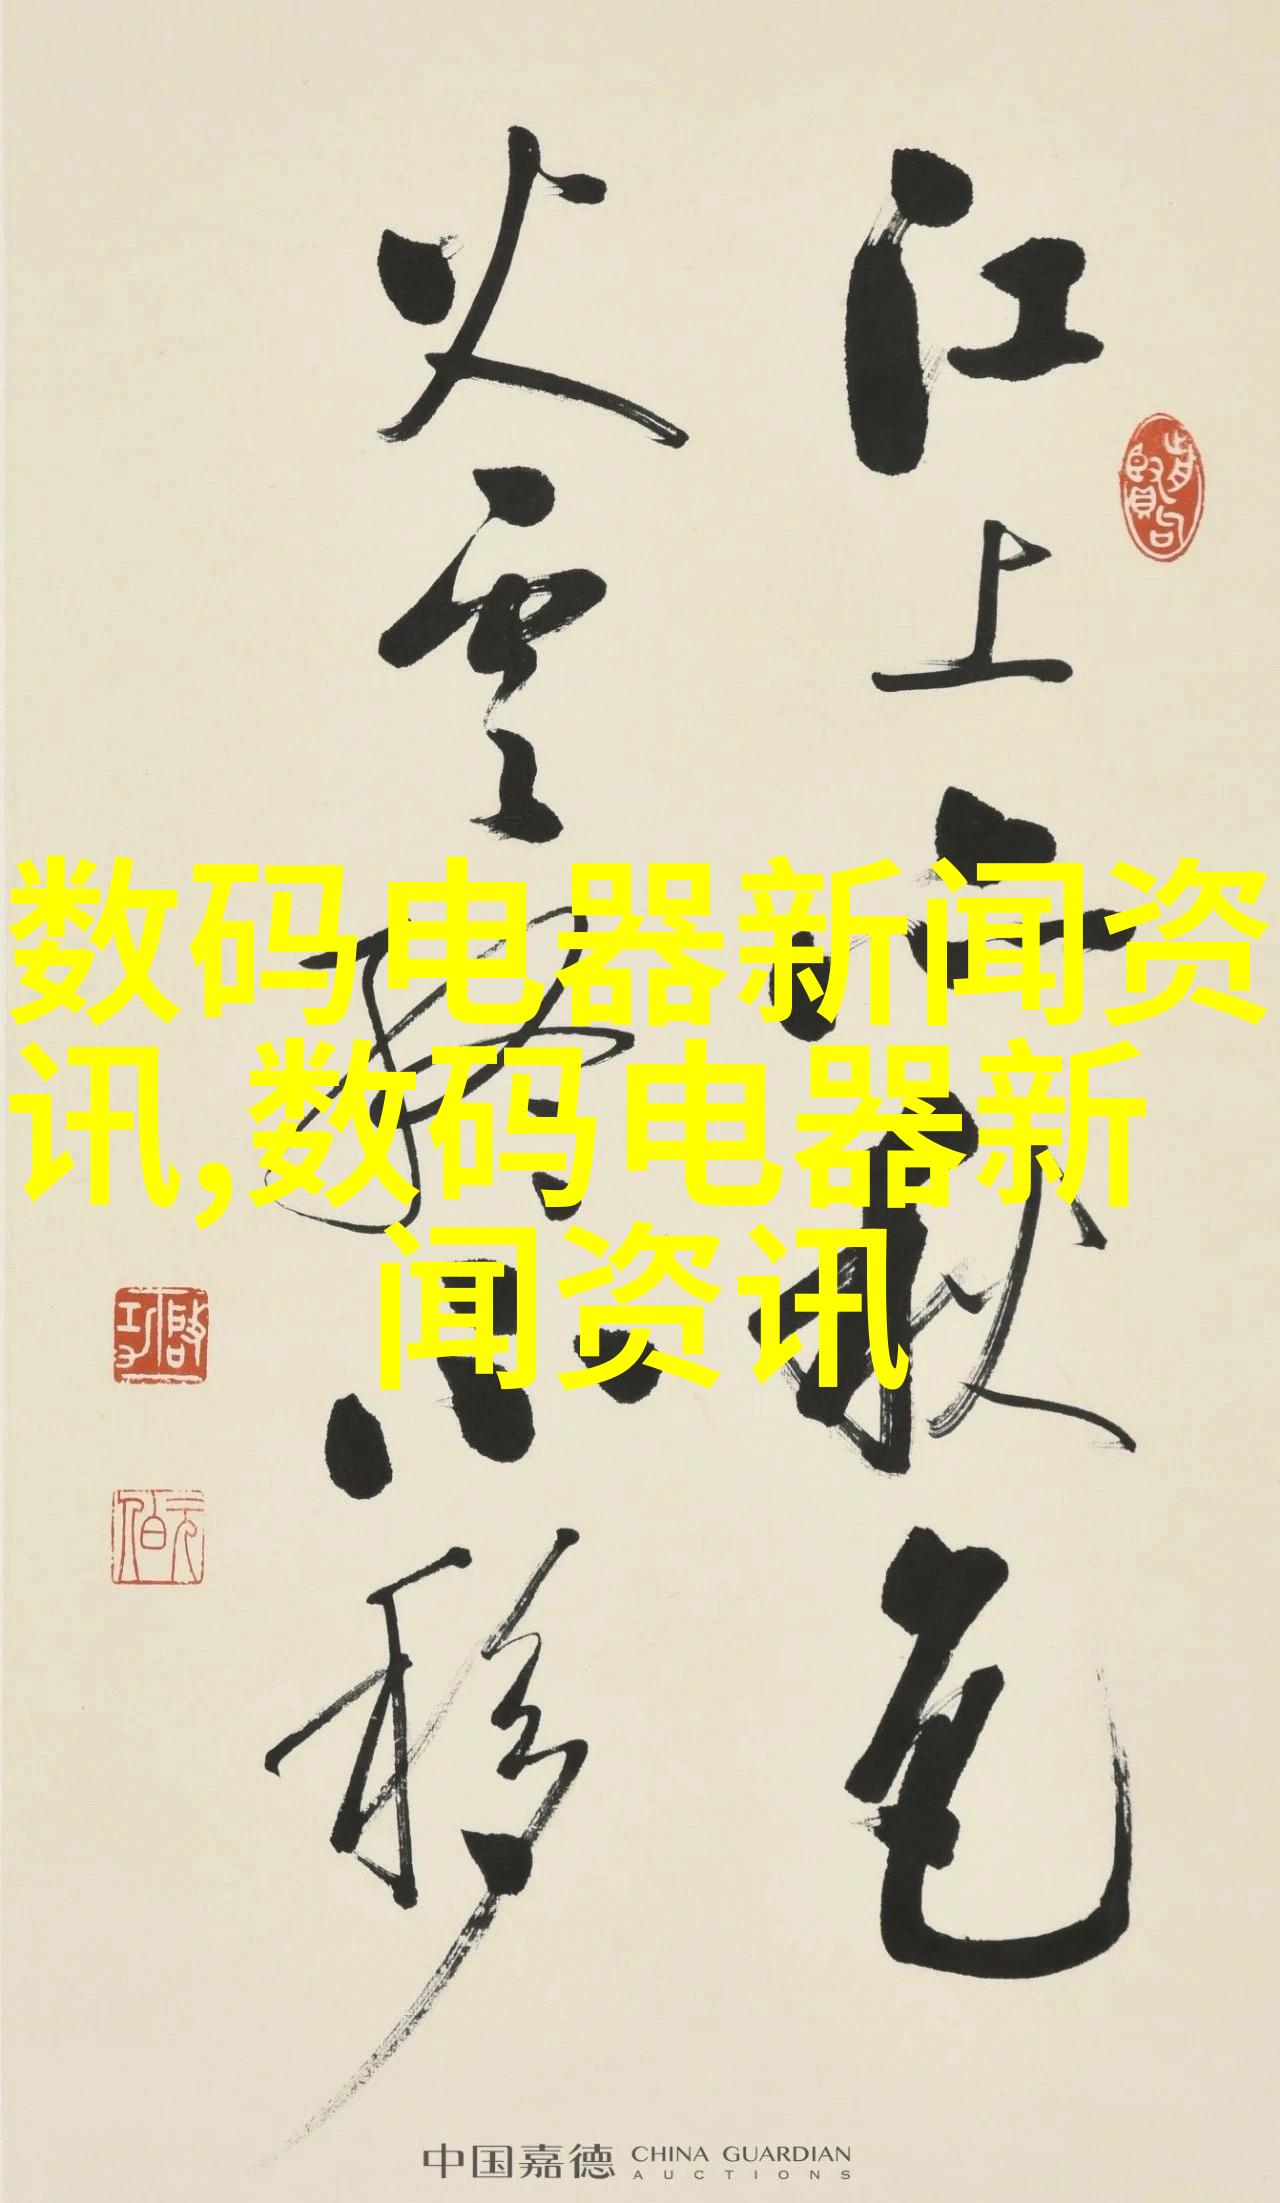 江上亦秋色
火雲終不移
啟功
元伯
数码电器新闻资
讯,数码电器新
闻资讯
中国嘉德 CHINA GUARDIAN
AUCTIONS